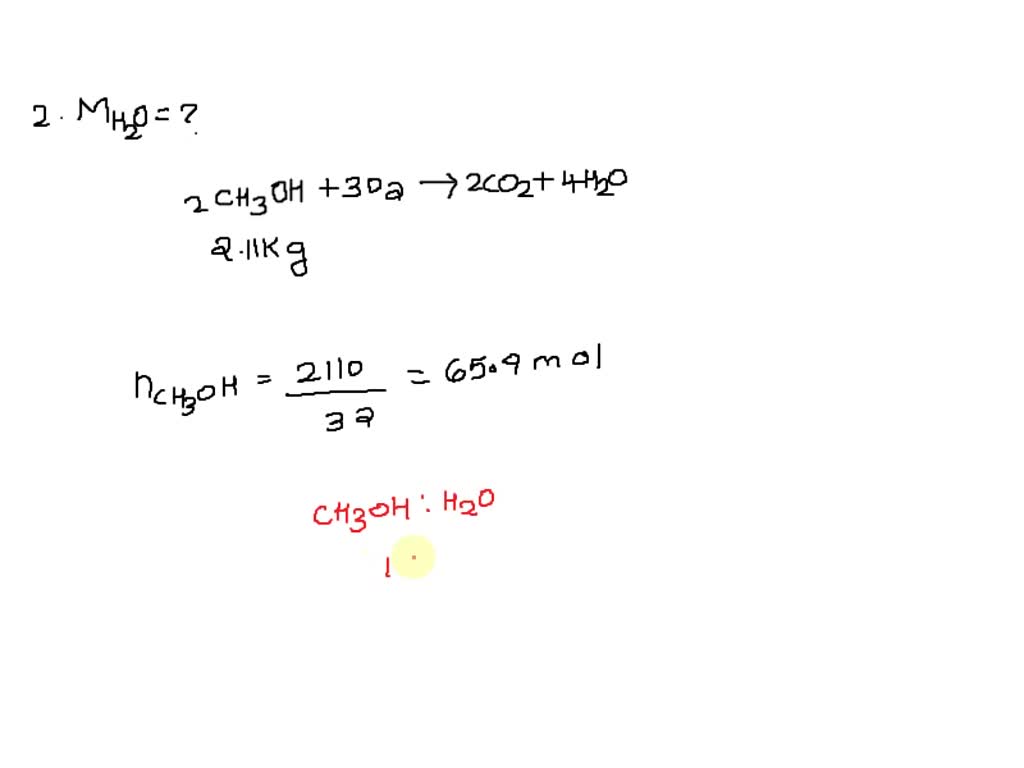 2. MH₂O = ?
2CH₃OH + 3O₂ → 2CO₂ + 4H₂O
2.11Kg
nCH₃OH = 2110/32 = 65.9 mol
CH₃OH : H₂O
1